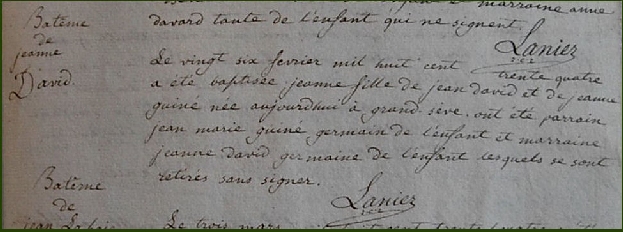 marraine anne
Batême
de
jeanne
David.
davard tante de l'enfant qui ne signent
Laniez
Le vingt six fevrier mil huit cent trente quatre
a été baptisée jeanne fille de jean david et de jeanne
guine née aujourdhui à grand sève. ont été parrain
jean marie guine germain de l'enfant et marraine
jeanne david germaine de l'enfant lesquels se sont
retirés sans signer.
Laniez
Batême
de
jean
Le trois mars